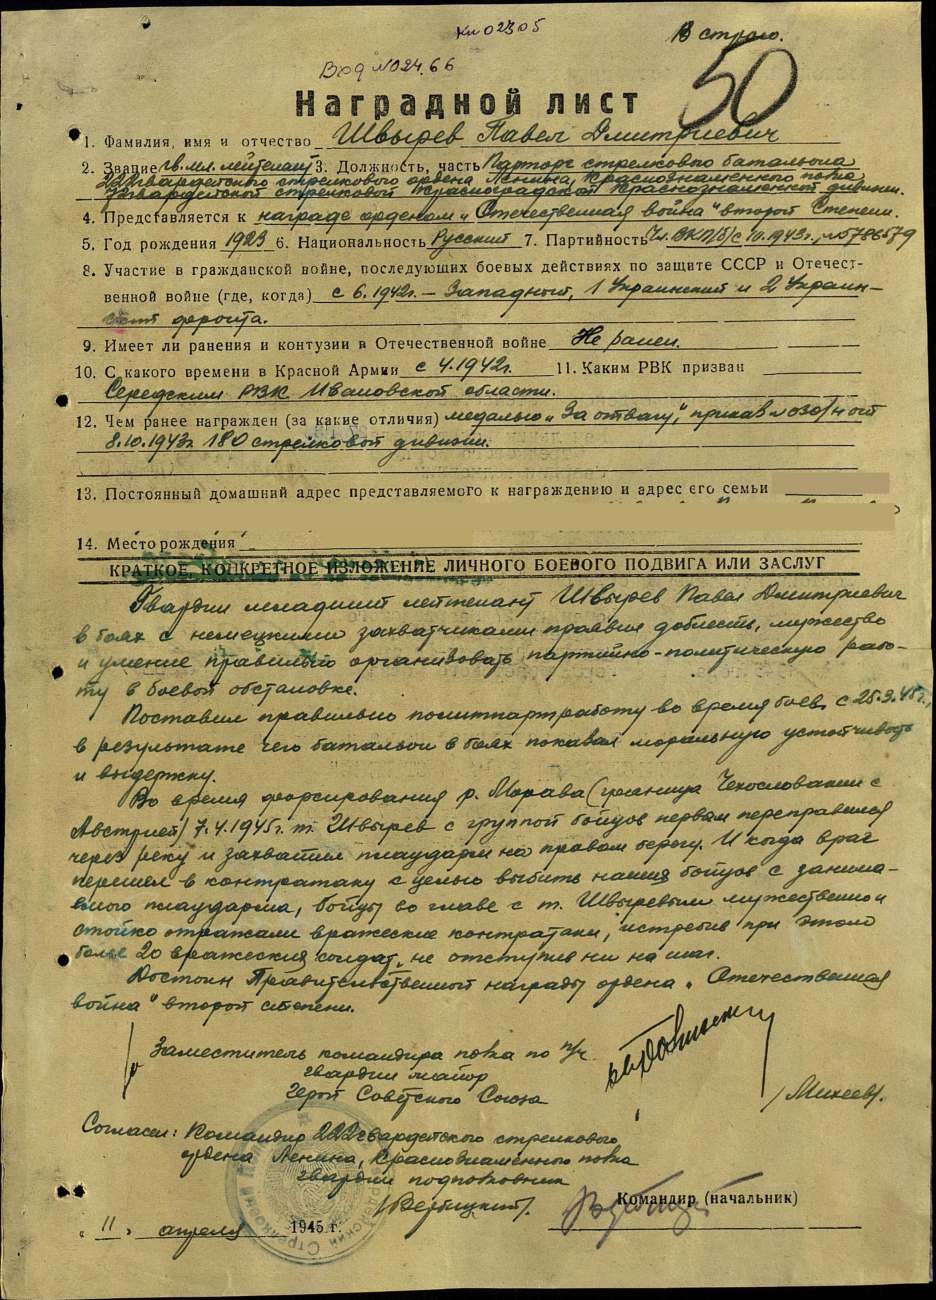 Кл 02305
В строю.
Вход №02466
50
Наградной лист
1. Фамилия, имя и отчество Швырев Павел Дмитриевич
2. Звание гв. мл. лейтенант 3. Должность, часть Парторг стрелкового батальона
222 гвардейского стрелкового ордена Ленина, Краснознаменного полка
гвардейской стрелковой Красноградской Краснознаменной дивизии.
4. Представляется к награде орденом „Отечественная война" второй степени.
5. Год рождения 1923 6. Национальность Русский 7. Партийность Чл. ВКП/б/ с 10.1943г., №5786579
8. Участие в гражданской войне, последующих боевых действиях по защите СССР и Отечест-
венной войне (где, когда) с 6.1942г. – Западный, 1 Украинский и 2 Украин-
фронта.
9. Имеет ли ранения и контузии в Отечественной войне Не ранен.
10. С какого времени в Красной Армии с 4.1942г. 11. Каким РВК призван
Середским РВК Ивановской области.
12. Чем ранее награжден (за какие отличия) медалью „За отвагу", приказ №030/н от
8.10.1943г. 180 стрелковой дивизии.
13. Постоянный домашний адрес представляемого к награждению и адрес его семьи
14. Место рождения
КРАТКОЕ, КОНКРЕТНОЕ ИЗЛОЖЕНИЕ ЛИЧНОГО БОЕВОГО ПОДВИГА ИЛИ ЗАСЛУГ
Гвардии младший лейтенант Швырев Павел Дмитриевич
в боях с немецкими захватчиками проявил доблесть, мужество
и умение правильно организовать партийно-политическую рабо-
ту в боевой обстановке.
Поставил правильно политпартработу во время боев с 25.3.45г.,
в результате чего батальон в боях показал моральную устойчивость
и выдержку.
Во время форсирования р. Морава (граница Чехословакии с
Австрией) 7.4.1945г. т. Швырев с группой бойцов первым переправился
через реку и захватил плацдарм на правом берегу. И когда враг
перешел в контратаку с целью выбить наших бойцов с занима-
емого плацдарма, бойцы во главе с т. Швыревым мужественно и
стойко отражали вражеские контратаки, истребив при этом
более 20 вражеских солдат, не отступив ни на шаг.
Достоин Правительственной награды ордена „Отечественная
война" второй степени.
Заместитель командира полка по п/ч
гвардии майор
Герой Советского Союза
/Михеев/.
Согласен: Командир 222 гвардейского стрелкового
ордена Ленина, Краснознаменного полка
гвардии подполковник
/Вербицкий/.
Командир (начальник)
„ 11 " апреля 1945 г.